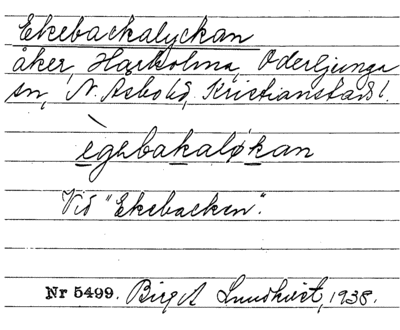 Ekebackalyckan
åker, Harholma, Oderljunga
sn, N. Åsbo hd, Kristianstads l.
ègəbakaløkan
Vid "Ekebacken".
Nr 5499. Birgit Lundkvist, 1938.